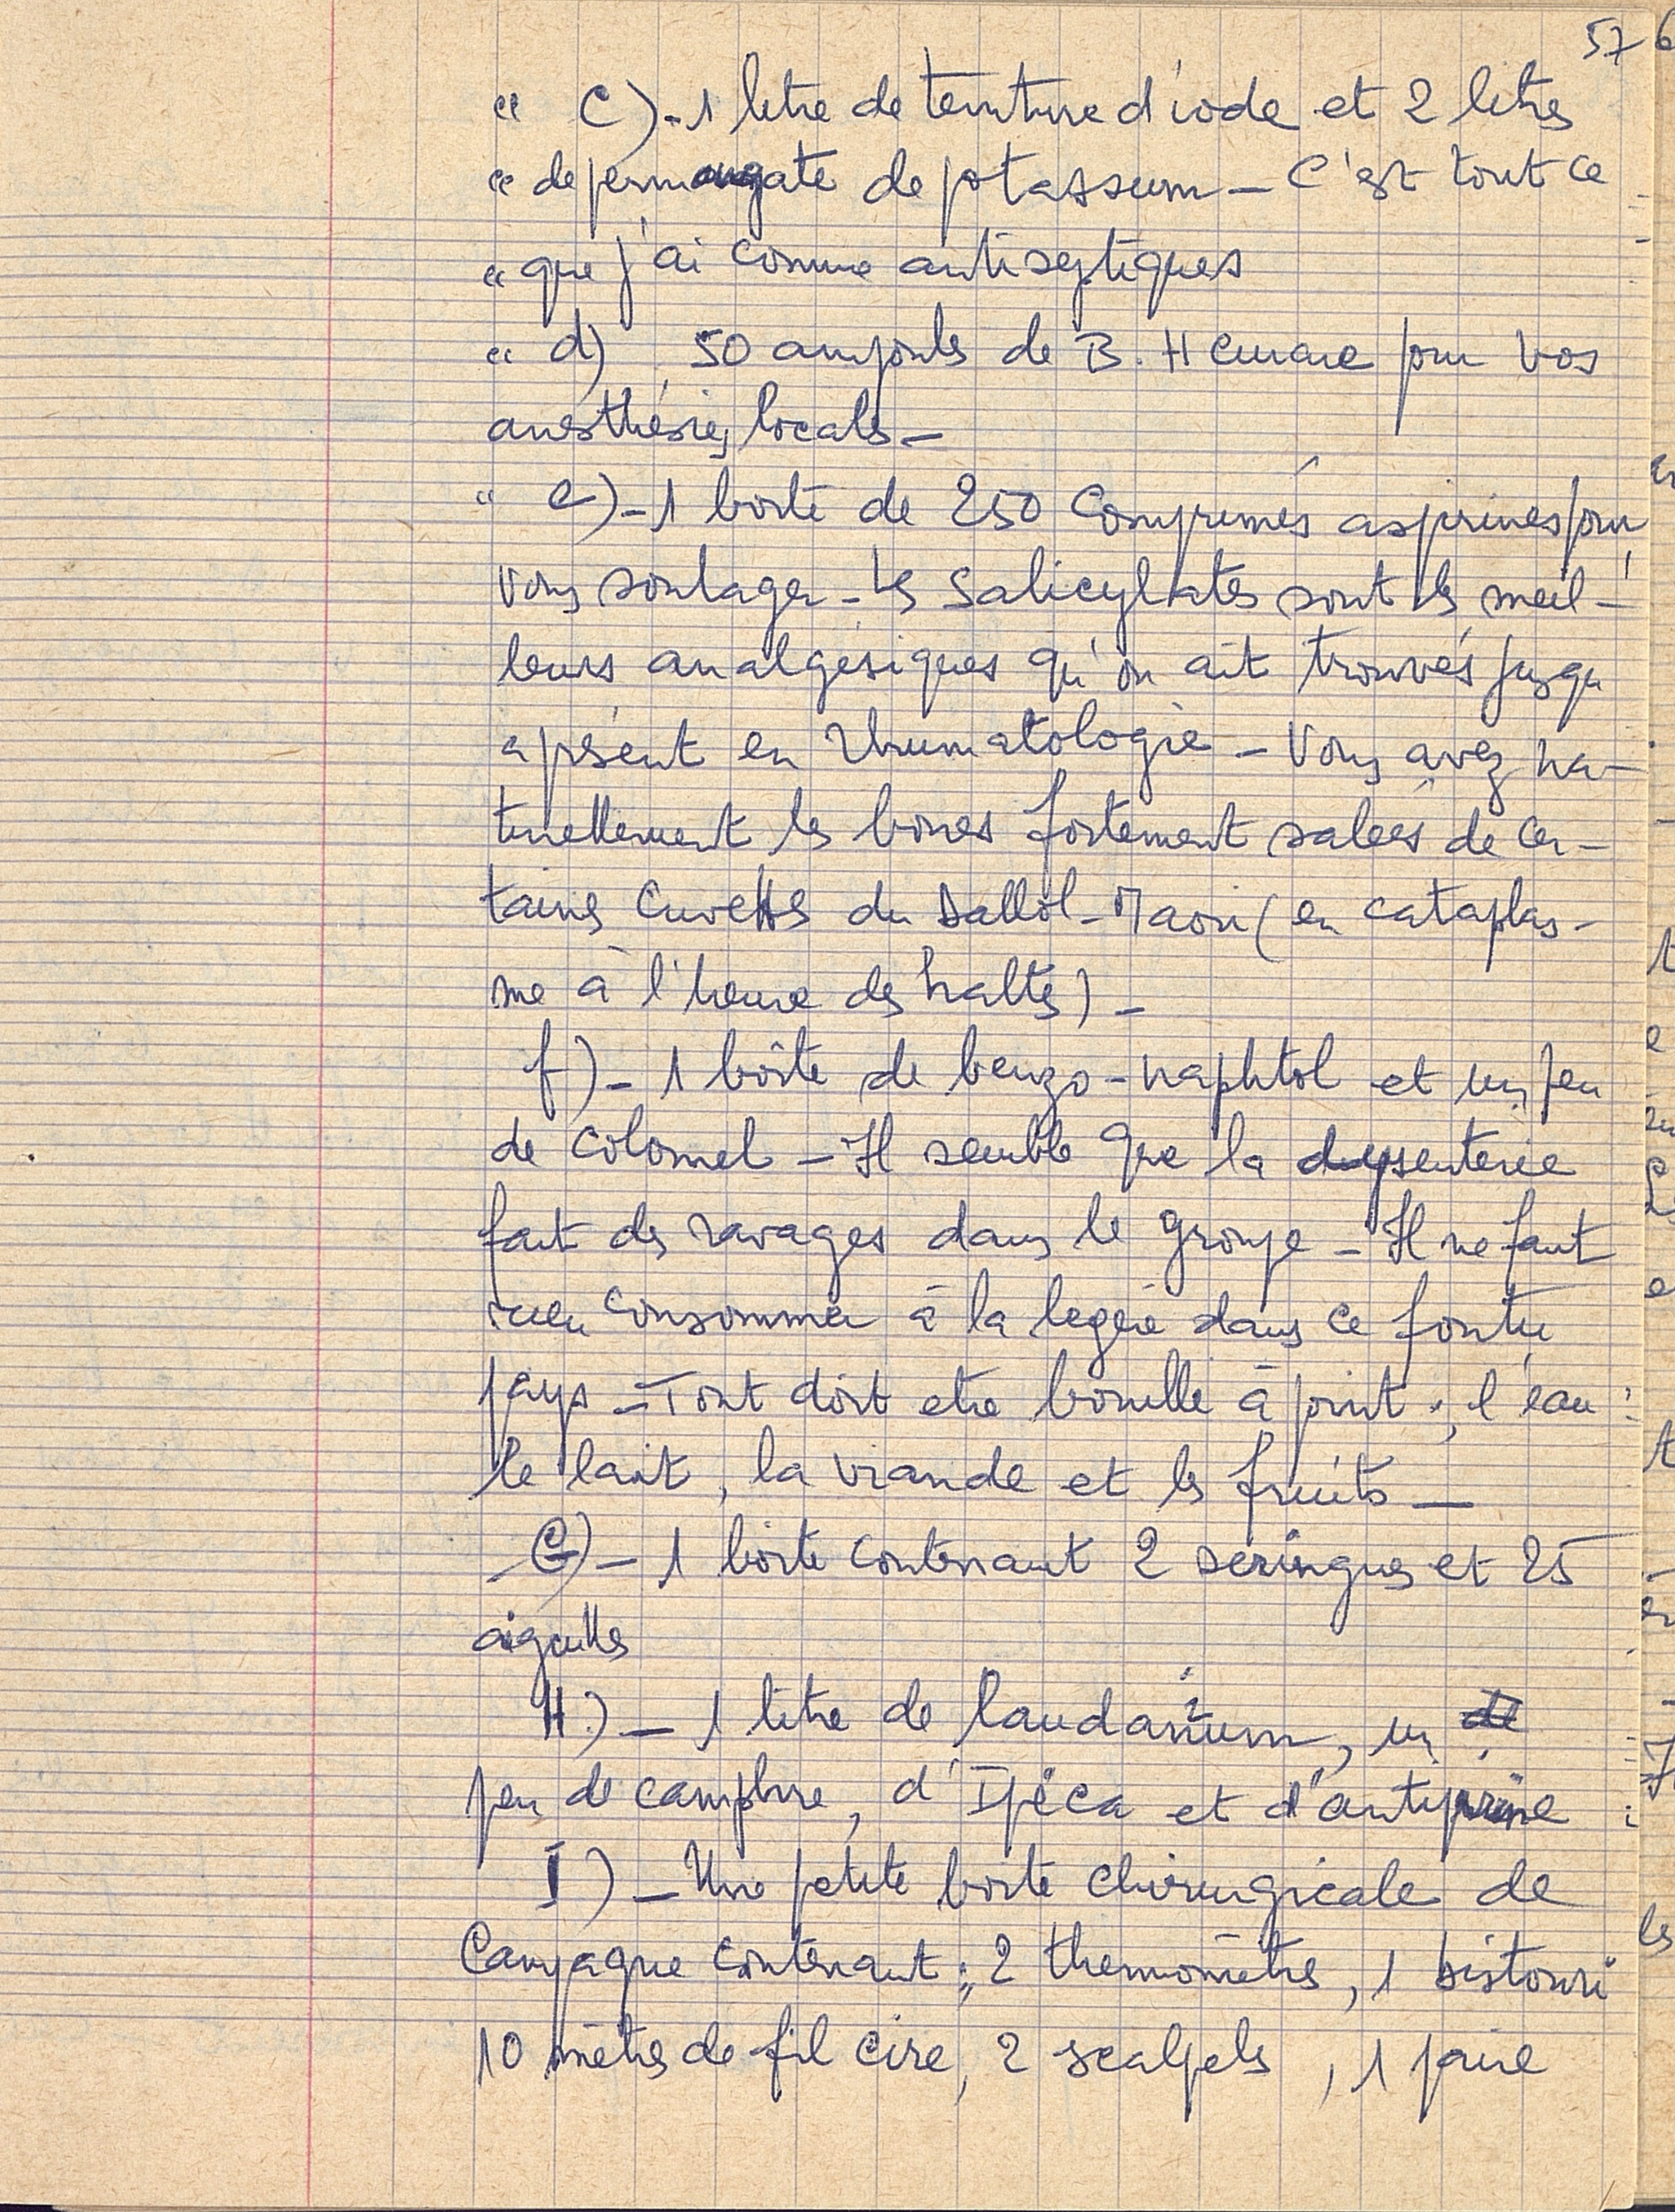 57
" C)-1 litre de teinture d'iode et 2 litres
" de permangate de potassum - C'est tout ce
" que j'ai comme antiseptiques
" d) 50 ampoules de B. H pour vos
anesthésies locales -
" e)-1 boite de 250 Comprimés aspirines pour
vous soulager - les Salicylates sont les meil-
leurs analgésiques qu'on ait trouvés jusqu
a présent en rhumatologie - Vous avez na-
turellement les boues fortement salées de cer-
taines Cuvettes du Dallol-Maori (en cataplas-
me à l'heure des haltes) -
f)-1 boîte de benzo-naphtol et un peu
de colomel - Il semble que la dysenterie
fait des ravages dans le groupe - Il ne faut
rien Consommer à la legère dans ce foutu
pays - Tout doit etre bouilli à point ; l'eau
le lait, la viande et les fruits -
G)-1 boite contenant 2 seringues et 25
aiguilles
H)-1 litre de laudanum, un de
peu de camphre, d'Ipéca et d'antiyprine
I)-Une petite boite chirurgicale de
Campagne contenant ; 2 thermomètres, 1 bistouri
10 mètres de fil cire, 2 scalpels, 1 paire